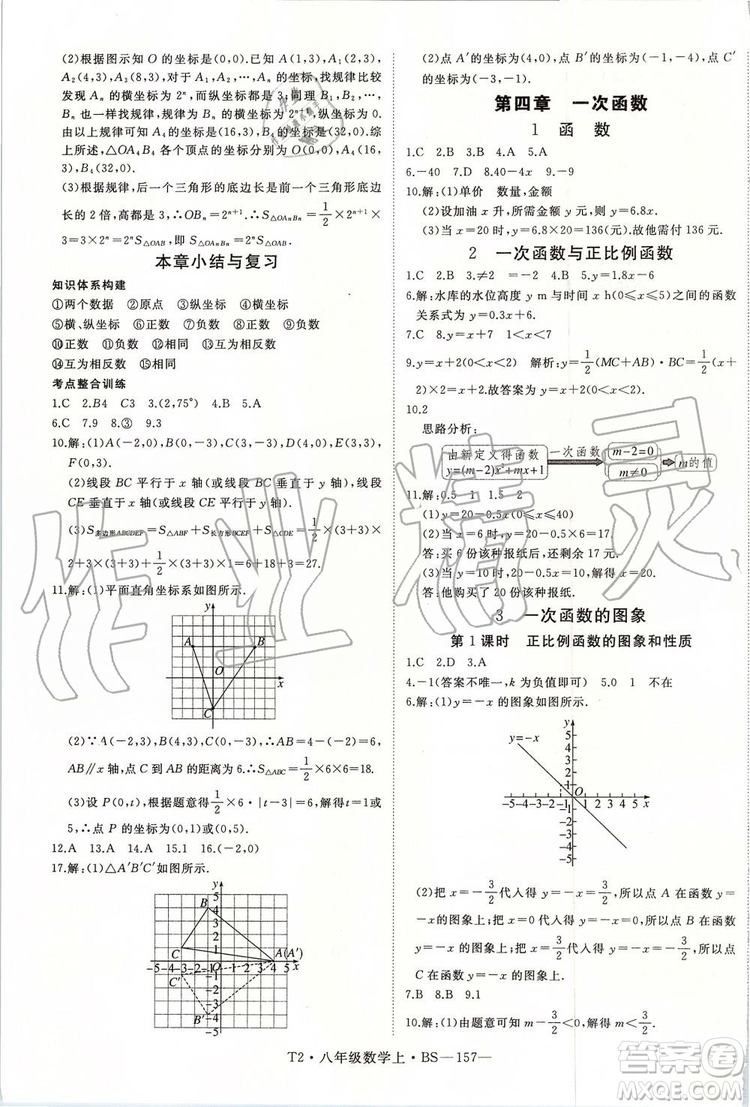 (2)根据图示知 O 的坐标是(0,0). 由 A(1,3), A₁(2,3),
A₂(4,3), A₃(8,3), 对于 A₁~Aₙ 坐标找规律比较
发现 Aₙ 的横坐标为 2ⁿ, 而纵坐标都是 3; 同理 Bₙ
也一样找规律, 规律为 Bₙ 的横坐标为 2ⁿ⁺¹, 纵坐标为 0.
由上规律可知 A₄ 的坐标是(16,3), B₄ 的坐标是(32,0). 综
上所述, O, A₄, B₄ 的坐标分别为 O(0,0), A₄(16,3),
B₄(32,0).
(3)根据规律, 后一个三角形的底边长是前一个三角形底边
长的 2 倍, 高都是 3, ∴OBₙ=2ⁿ⁺¹. ∴S△OAₙBₙ=1/2×2ⁿ⁺¹
×3=3×2ⁿ=S△OAB, 即 S△OAₙBₙ=S△OAB.
本章小结与复习
知识体系构建
①两个数据 ②原点 ③纵轴 ④横轴
⑤横、纵坐标 ⑥正数 ⑦负数 ⑧负数 ⑨负数
⑩正数 ⑪负数 ⑫正数 ⑬相同
⑭互为相反数 ⑮相同 ⑯互为相反数
考点整合训练
1.C 2.B4 C3 3.(2,75°) 4.B 5.A
6.C 7.9 8.③ 9.3
10.解:(1)A(-2,0), B(0,-3), C(3,-3), D(4,0), E(3,3),
F(0,3).
(2)线段 BC 平行于 x 轴(或线段 BC 垂直于 y 轴), 线段
CE 垂直于 x 轴(或线段 CE 平行于 y 轴).
(3)S多边形ABCDEF=S△ABF+S长方形BCEF+S△CDE=1/2×(3+3)
×2+3×(3+3)+1/2×(3+3)×1=6+18+3=27.
11.解:(1)平面直角坐标系如图所示.
y
A B
O
x
C
(2)∵A(-2,3), B(4,3), C(0,-3), ∴AB=4-(-2)=6,
AB∥x 轴, 点 C 到 AB 的距离为 6. ∴S△ABC=1/2×6×6=18.
(3)设 P(0,t), 根据题意得1/2×6·|t-3|=6, 解得 t=1 或
5, ∴点 P 的坐标为(0,1)或(0,5).
12.A 13.A 14.A 15.1 16.(-2,0)
17.解:(1)△A′B′C′如图所示.
y
5
B 4
3
2
C 1 A(A′)
-5 -4 -3 -2 -1 O 1 2 3 4 5 x
C′ -1
-2
-3
B′ -4
-5
(2)点 A′的坐标为(4,0), 点 B′的坐标为(-1,-4), 点 C′
的坐标为(-3,-1).
第四章 一次函数
1 函 数
1.C 2.B 3.B 4.A 5.A
6.-40 7.D 8.40 4 9.-9
10.解:(1)单价 数量,金额
(2)设加油 x 升, 则所需金额为 y 元, y=6.8x.
(3)当 x=20 时, y=6.8×20=136(元). 故他需付 136 元.
2 一次函数与正比例函数
1.C 2.B 3.≠2 =-2 4.B 5.y=0.8x
6.解:水库的水位高度 y m 与时间 x h(0≤x≤5)之间的函数
关系式为 y=0.3x+6.
7.C 8.y=x+1 1<x<7
9.y=x+2(0≤x<2) 解析: y=1/2(MC+AB)·BC=1/2(x+
2)×2=x+2. 故答案为 y=x+2(0≤x<2).
10.2
思路分析:
由新定义得函数 y=(m-2)x²+mx+1 一次函数 m-2=0 m≠0 m 的值
11.解:0.5 1 1.5 2
(1)y=20-0.5x(0≤x≤40).
(2)当 x=6 时, y=20-0.5×6=17.
答:买 6 份该种报纸后,还剩余 17 元.
(3)当 y=10 时, 20-0.5x=10, 解得 x=20.
答:他购买了 20 份该种报纸.
3 一次函数的图象
第 1 课时 正比例函数的图象和性质
1.C 2.D 3.A
4.-1(答案不唯一,k 为负值即可) 5.0 1 不在
6.解:(1)y=-x 的图象如图所示.
y
y=-x 5
4
3
2
1
-5-4-3-2-1 O 1 2 3 4 5 x
-1
-2
-3
-4
-5
(2)把 x=-3/2 代入得 y=3/2, 所以点 A 在函数
y=-x 的图象上; 把 x=3/2 代入得 y=-3/2, 所以点 B 在函数
y=-x 的图象上; 把 x=-3/2 代入得 y=3/2≠-3/2, 所以点
C 不在函数 y=-x 的图象上.
7.B 8.B 9.1
10.解:(1)由题意可知 m-1/2<0, 解得 m<1/2.
T2·八年级数学上·BS—157—
作业精灵
答案圈
MXQE.COM